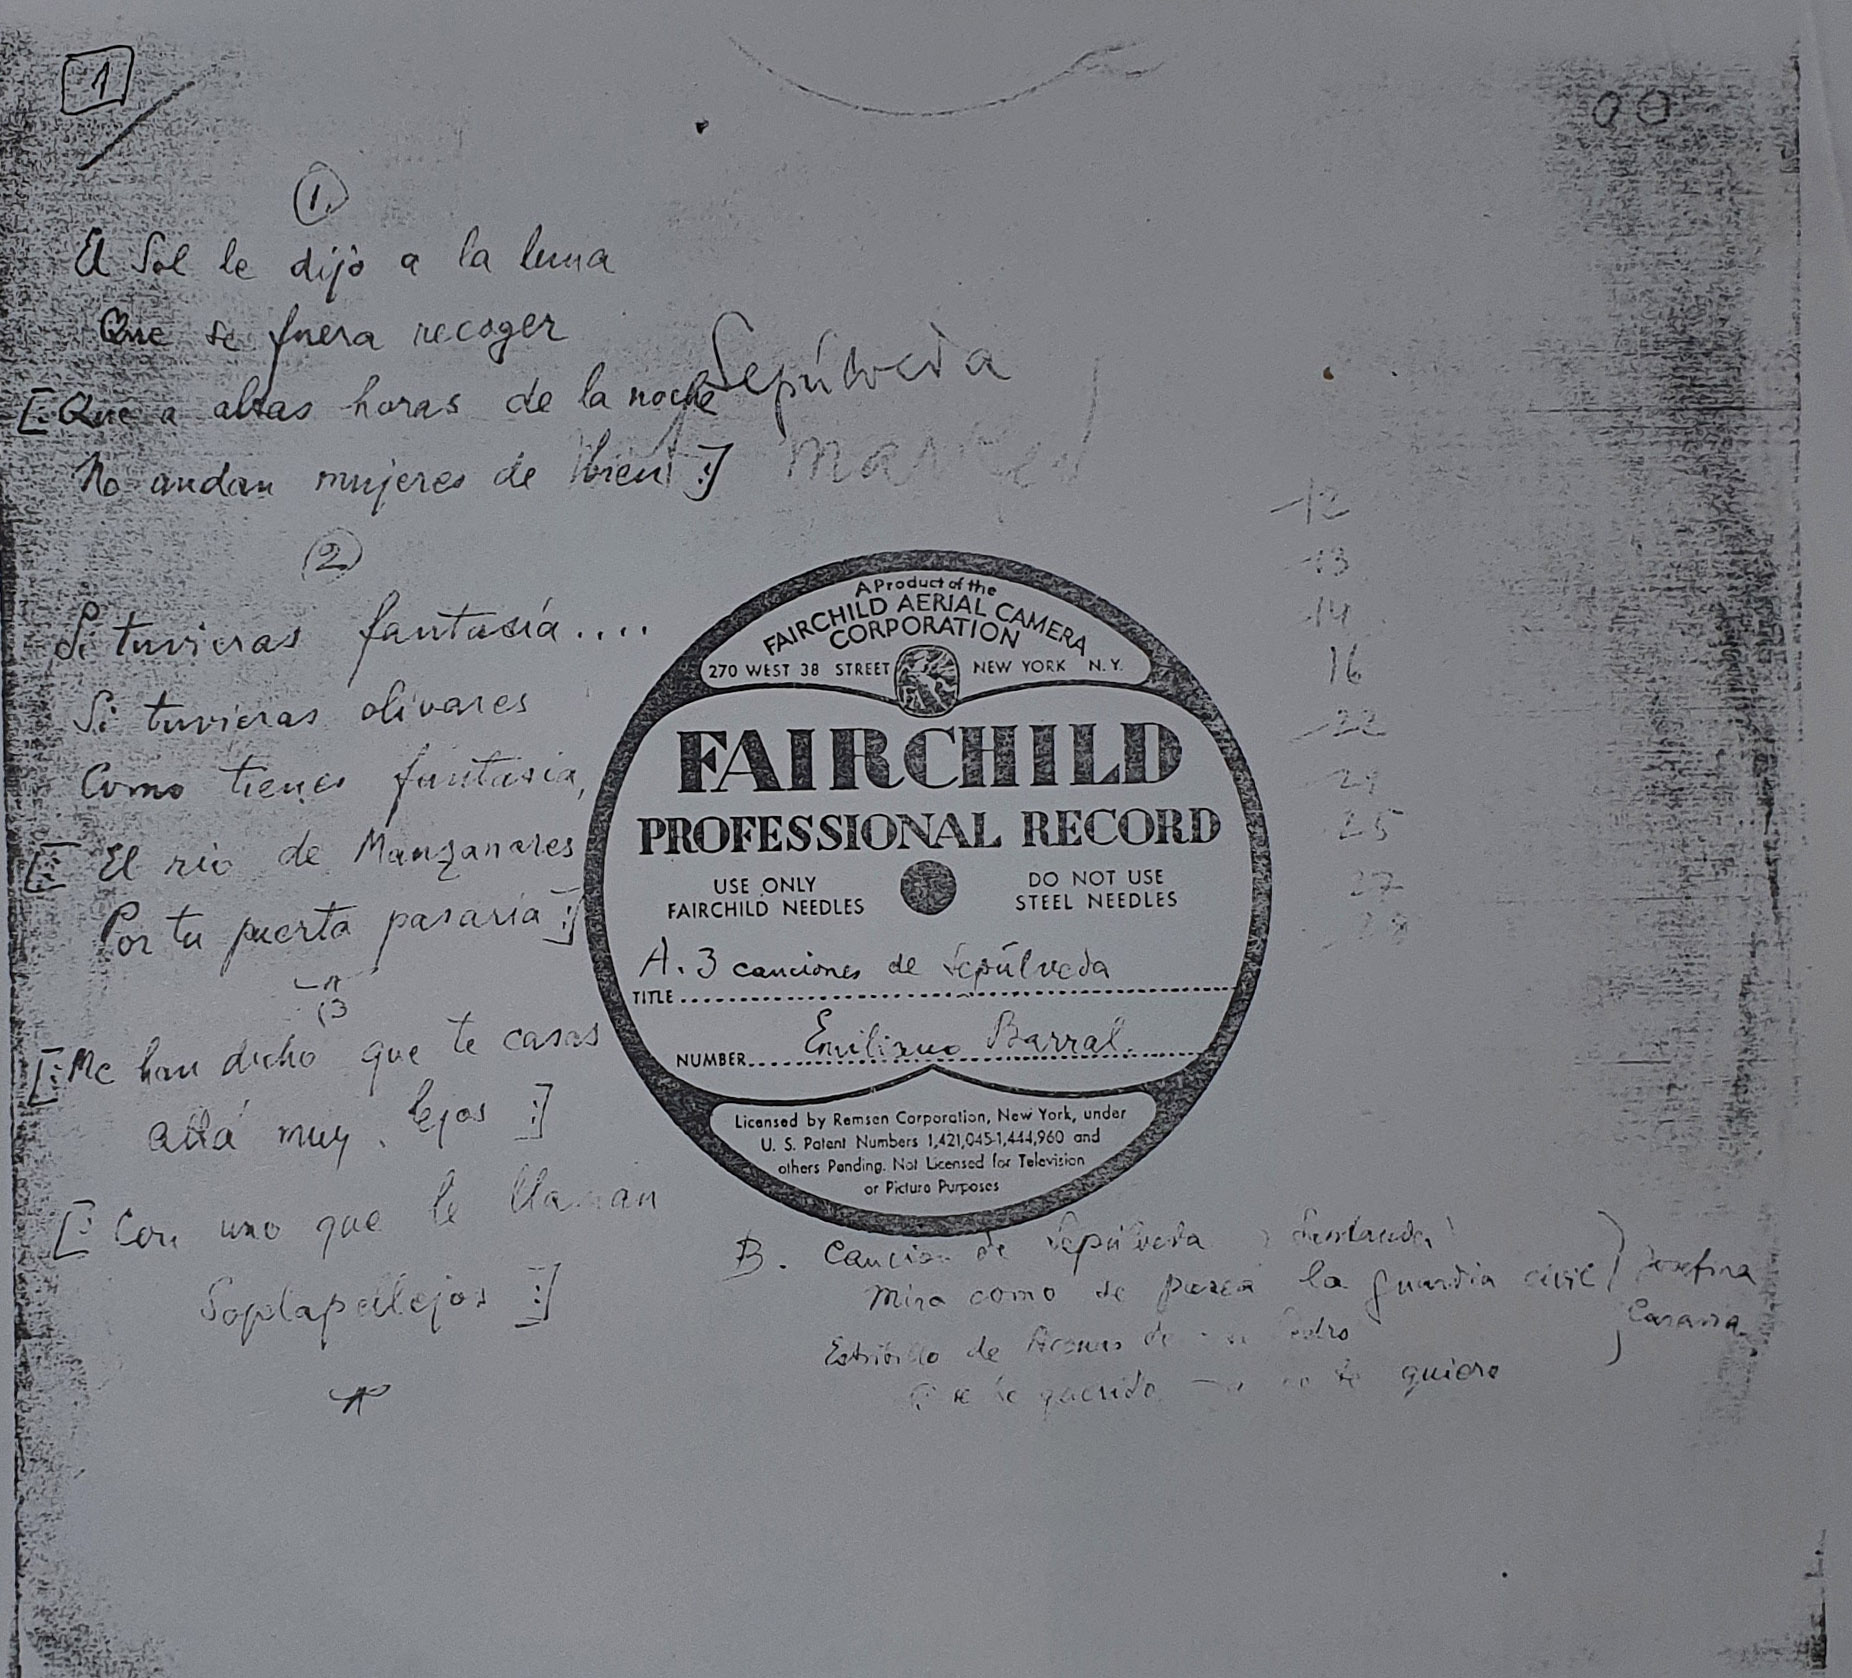 1
00
1.
El Sol le dijo a la luna
Que se fuera recoger
[: Que a altas horas de la noche
No andan mujeres de bien :]
Sepúlveda
2
Si tuvieras fantasía....
Si tuvieras olivares
Como tienes fantasia,
[: El rio de Manzanares
Por tu puerta pasaría :]
3
[: Me han dicho que te casas
allá muy lejos :]
[: Con uno que le llaman
Soplapellejos :]
12
13
14
16
22
25
27
28
A Product of the
FAIRCHILD AERIAL CAMERA
CORPORATION
270 WEST 38 STREET NEW YORK N.Y.
FAIRCHILD
PROFESSIONAL RECORD
USE ONLY
FAIRCHILD NEEDLES
DO NOT USE
STEEL NEEDLES
A. 3 canciones de Sepúlveda
TITLE
NUMBER Emiliano Barral.
Licensed by Remsen Corporation, New York, under
U. S. Patent Numbers 1,421,045-1,444,960 and
others Pending. Not Licensed for Television
or Picture Purposes
B. Cancion de Sepúlveda
Mira como se pasea la guardia civil
Estribillo de Arenas de Pedro
querido quiero
Josefina